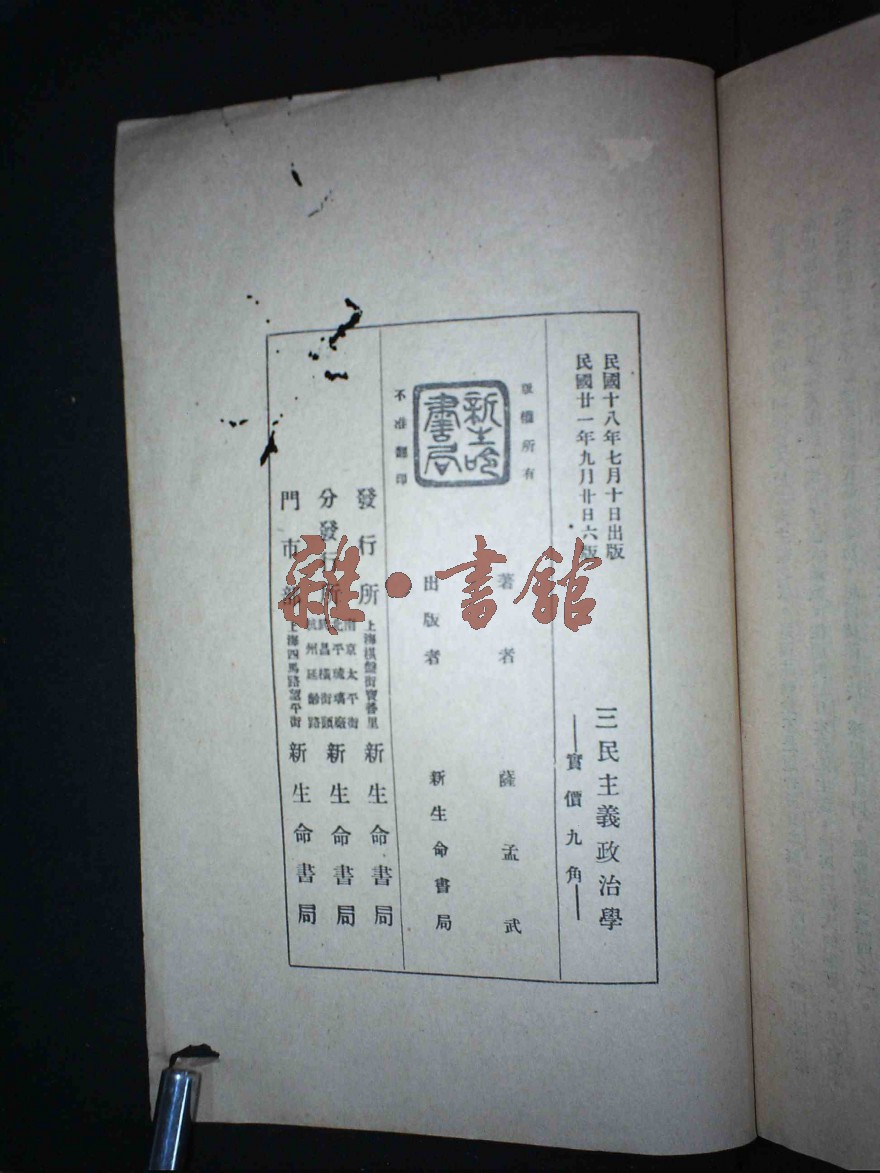 民國十八年七月十日出版
民國廿一年九月廿日六版
三民主義政治學
實價九角
版權所有
新生命書局
不准翻印
著者 薩孟武
出版者 新生命書局
發行所 上海棋盤街寶善里 新生命書局
分發行所 南京太平街 北平琉璃廠 南昌橫街頭 杭州延齡路 新生命書局
門市部 上海四馬路望平街 新生命書局
雜·書館